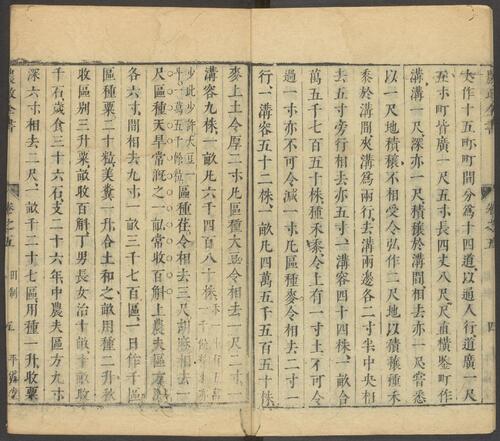 夫作十五町町間分為十四道以通人行道廣一尺
五寸町皆廣一尺五寸長四丈八尺尺直橫鑿町作
溝溝一尺深亦一尺積穰於溝間相去亦一尺嘗悉
以一尺地積穰不相受令弘作二尺地以積穰種禾
黍於溝間夾溝為兩行去溝兩邊各二寸半中央相
去五寸旁行相去亦五寸一溝容四十四株一畝合
萬五千七百五十株種禾黍令上有一寸土不可令
過一寸亦不可令減一寸凡區種麥令相去二寸一
行一溝容五十二株一畝凡四萬五千五百五十株
麥上土令厚二寸凡區種大豆令相去一尺二寸一
溝容九株一畝凡六千四百八十株
少此少許大豆一斗一萬五千餘粒區種荏令相去三尺胡麻相去一
尺區種天旱常溉之一畝常收百斛上農夫區方深
各六寸間相去九寸一畝三千七百區一日作千區
區種粟二十粒美糞一升合土和之畝用種二升秋
收區別三升粟畝收百斛丁男長女治十畝十畝收
千石歲食三十六石支二十六年中農夫區方九寸
深六寸相去二尺一畝千二十七區用種一升收粟
農政全書 卷之五 田制 五 平露堂